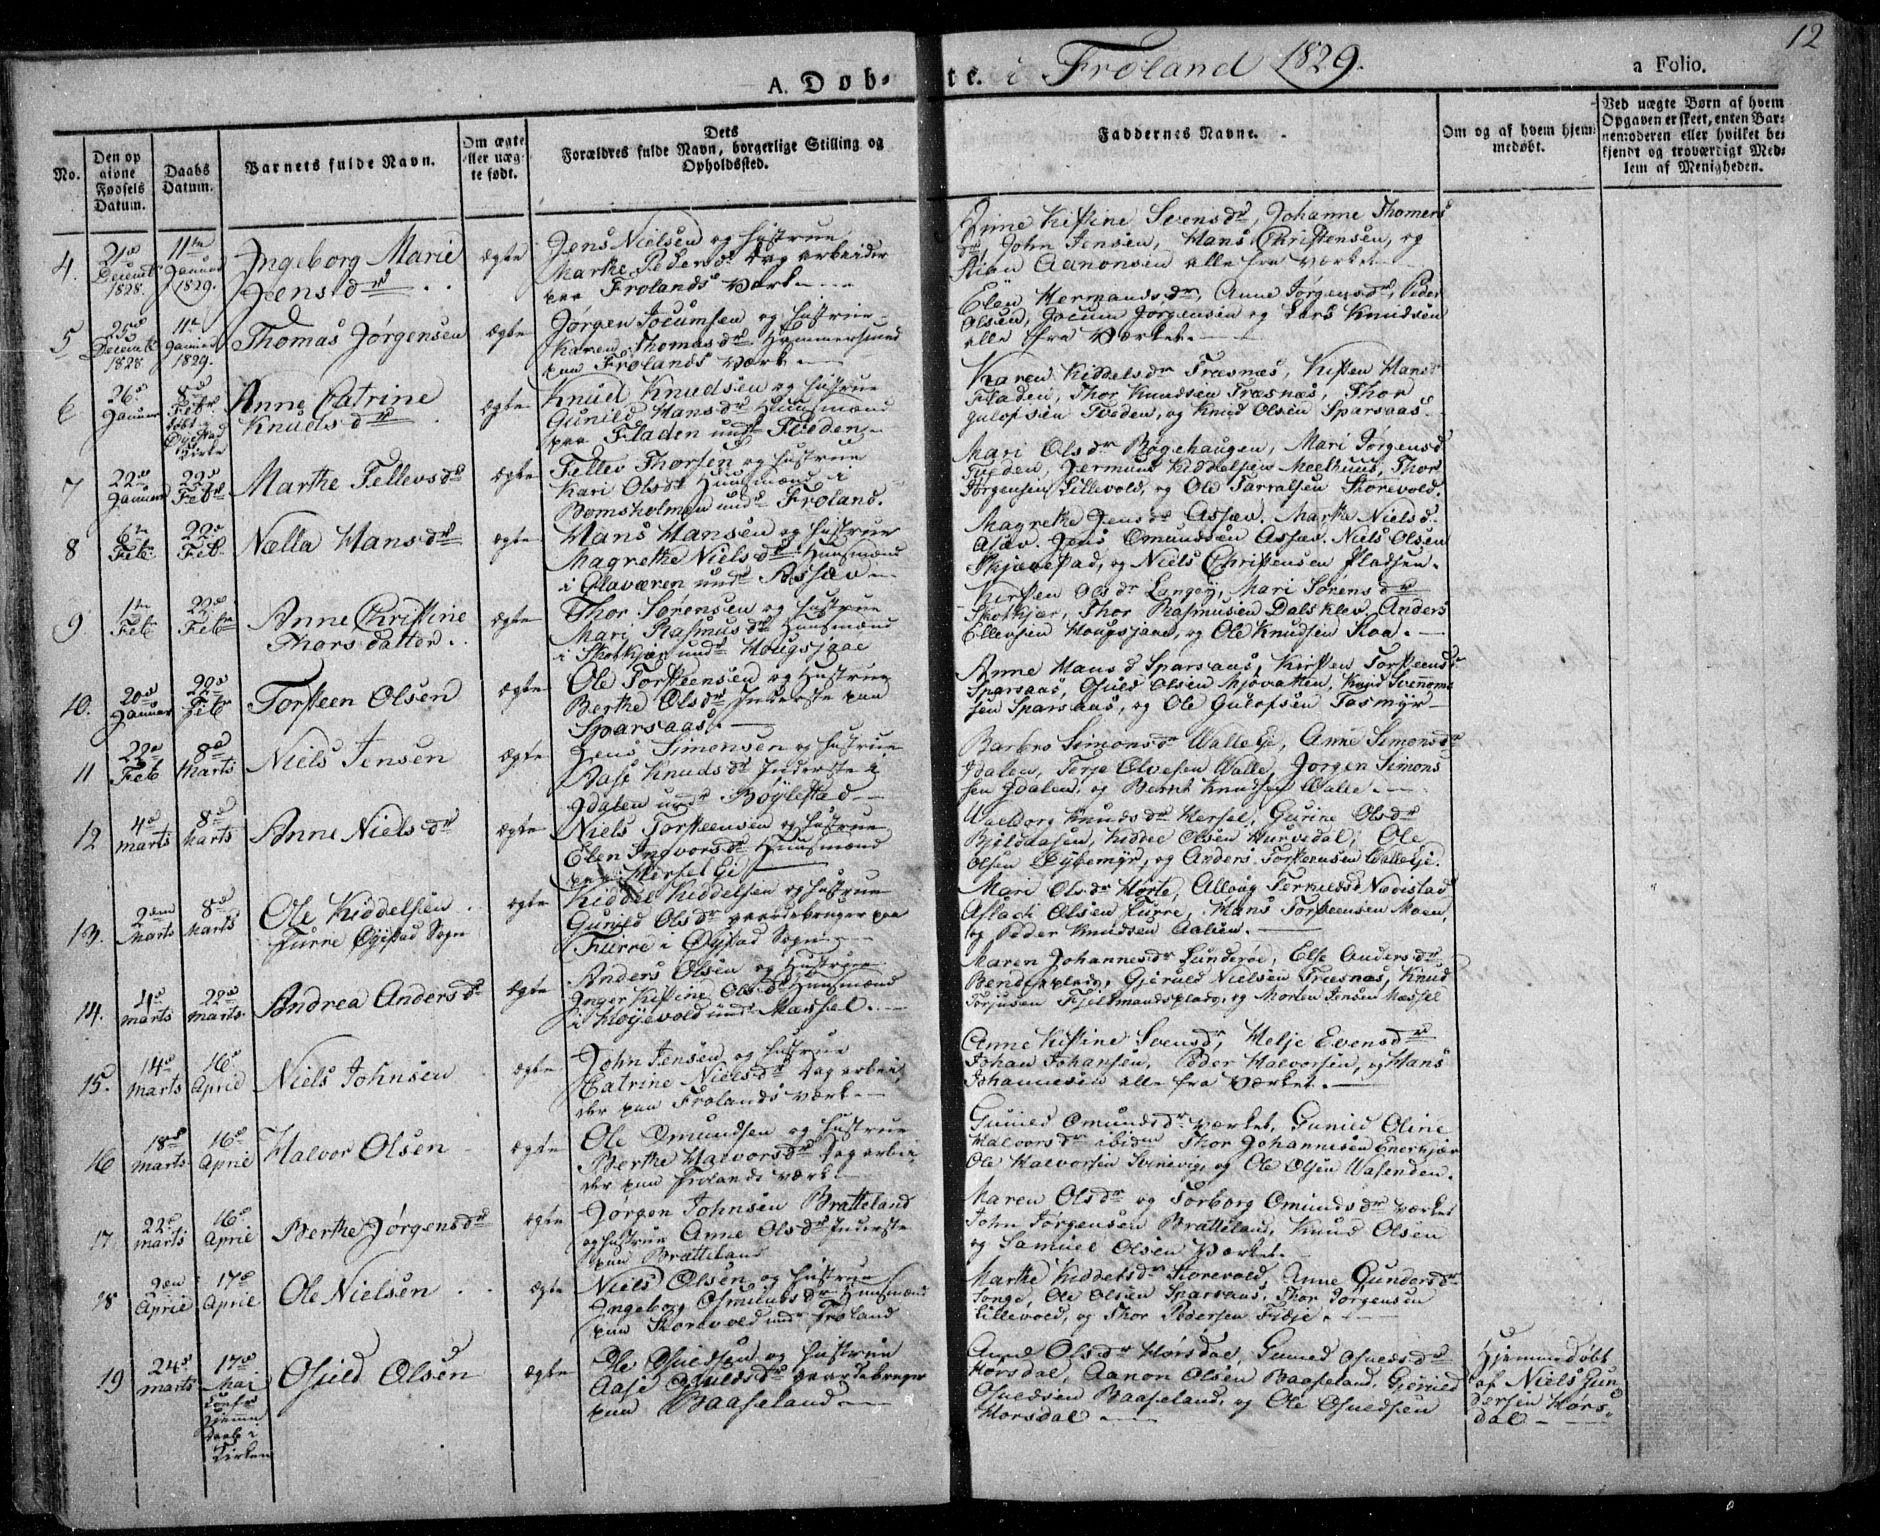 12
A. Døb- te. i Froland 1829. a Folio.
No.
Den op
givne
Fødsels
Datum.
Daabs
Datum.
Barnets fulde Navn.
Om ægte
eller uæg-
te født.
Dets
Forældres fulde Navn, borgerlige Stilling og
Opholdssted.
Faddernes Navne.
Om og af hvem hjem-
medøbt.
Ved uægte Børn af hvem
Opgaven er skeet, enten Bar-
nemoderen eller hvilket be-
kjendt og troværdigt Med-
lem af Menigheden.
4.
21de
Decembr
1828.
11te
Januar
1829.
Ingeborg Marie
Jensdr
ægte
Jens Nielsen og Hustrue
Marthe Pedersdr Dagarbeider
paa Frolands Værk
Kistine Svensdr, Johanne Thomes
dr, John Jensen, Hans Christensen, og
Aanonsen alle fra Værket
5
25de
Decembr
1828.
11te
Januar
1829.
Thomas Jørgensen
ægte
Jørgen Jocumsen og Hustrue
Karen Thomasdr Hammersmed
paa Frolands Værk
Elen Hermandsdr, Anne Jørgensdr, Peder
Olsen, Jocum Jørgensen og Lars Knudsen
alle fra Værket.
6
26de
Januar
8de
Febr
døbt i
Øyestad
Kirke
Anne Catrine
Knudsdr
ægte
Knud Knudsen og Hustrue
Gunild Hansdr Huusmænd
paa Fladen undr Tveden
Karen Kiddelsdr Træsnæs, Kisten Hansdr
Fladen, Thor Knudsen Træsnæs, Thor
Gulofsen Tveden, og Knud Olsen Sparsaas.
7
22de
Januar
22de
Febr
Marthe Tellevsdr
ægte
Tellev Thorsen og Hustrue
Kari Olsdr Huusmænd i
Bomsholmen undr Froland.
Mari Olsdr Bøgehaugen, Mari Jørgensd
Tveden, Jermund Kiddelsen Meelhuus, Thor
Jørgensen Lillevold, og Ole Tarralsen Storevold.
8
6te
Feb
22de
Feb
Nælla Hansdr
ægte
Hans Hansen og Hustrue
Magrethe Nielsdr Huusmænd
i Glaværen undr Assæv
Magrethe Jensdr Assæv, Marthe Nielsd
Asæv, Jens Omundsen Assæv, Niels Olsen
Skjævestad, og Niels Christensen Pladsen.
9
1te
Feb
22de
Feb
Anne Christine
Thorsdatter.
ægte
Thor Sørensen og Hustrue
Mari Rasmusdr Huusmænd
i Skotkjær undr Hougsjaae
Kirsten Olsdr Langøy, Mari Sørensdr
Skotkjær, Thor Rasmusen Dalsklev, Anders
Ellevsen Hougsjaae, og Ole Knudsen Roa.
10.
20de
Januar
22de
Feb
Torsteen Olsen
ægte
Ole Torsteensen og Hustrue
Berthe Olsdr Inderste paa
Sparsaas.
Anne Hansd Sparsaas, Kirsten Torsteensdr
Sparsaas, Osuld Olsen Mjøvatten, Knud Svennom
sen Sparsaas, og Ole Gulofsen Tasmyr
11
22de
Feb
8de
Marts
Niels Jensen
ægte
Jens Simensen og Hustrue
Aase Knudsdr Inderste i
Idalen undr Bøylestad
Barbro Simonsdr Walle Ei, Anne Simonsdr
Idalen, Terje Olvesen Walle, Jørgen Simons
sen Idalen, og Bernt Knudsen Walle.
12
4de
Marts
8de
Marts
Anne Nielsdr
ægte
Niels Torsteensen og Hustrue
Elen Ingvorsdr Huusmænd
paa Hersel Ei
Walborg Knudsdr Hersel, Gurine Olsdr
Bjildaasen, Kiddel Olsen Hurvedal, Ole
Olsen Dybemyr, og Anders Torsteensen Walle Ei.
13.
2den
Marts
8de
Marts
Ole Kiddelsen
Furre Øyestad Sogn
ægte
Kiddel Kiddelsen og Hustrue
Gunild Olsdr Gaardebruger paa
Furre i Øyestad Sogn
Mari Olsdr Hørte, Allvig Terkelsd Navestad
Aslach Olsen Furre, Hans Torsteensen Moen,
og Peder Knudsen Aalien.
14.
4de
Marts
22de
Marts
Andrea Andersdr
ægte
Anders Olsen og Hustrue
Inger Kistine Olsdr Huusmænd
i Høyevold undr Mæssel.
Maren Johannesdr Lunderøe, Else Andersdr
Bendixplads, Gjeruld Nielsen Træsnæs, Knud
Torjusen Fjeldmandsplads, og Morten Jensen Mæssel
15.
14de
Marts
16de
April
Niels Johnsen
ægte
John Jensen og Hustrue
Catrine Nielsdr Dagarbei
der paa Frolands Værk
Anne Kistine Svensdr, Helje Evensdr
Johan Johansen, Peder Halvorsen, og Hans
Johannesen alle fra Værket.
16
18de
Marts
16de
April
Halvor Olsen
ægte
Ole Omundsen og Hustrue
Berthe Halvorsdr Dagarbei
der paa Frolands Værk
Gunild Omundsdr Værket, Gunild Oline
Halvorsdr ibiden Thor Johannesen Enerkjær
Ole Halvorsen Svinevig, og Ole Olsen Wasenden.
17
22de
Marts
16de
April
Berthe Jørgensdr
ægte
Jørgen Johnsen Bratteland
og Hustrue Anne Olsdr Inderste
paa Bratteland
Maren Olsdr og Torborg Omundsdr Værket
John Jørgensen Bratteland, Knud Olsen
og Samuel Olsen Værket.
18
2den
April
17de
April
Ole Nielsen
ægte
Niels Olsen og Hustrue
Ingeborg Osmundsdr Huusmænd
paa Storevold undr Froland
Marthe Kiddelsdr Storevold, Anne Gundersdr
Songe, Ole Olsen Sparsaas, Thor Jørgensen
Lillevold, og Thor Pedersen Fidje.
19
24de
Marts
17de
Mai
Conf
Hjemme
daab i
Kirken
Osuld Olsen
ægte
Ole Osuldsen og Hustrue
Aase Osuldsdr Gaardebruger
paa Baaseland
Anne Olsdr Horsdal, Gunild Osuldsdr
Horsdal, Aanon Olsen Baaseland, Gjeruld
Osuldsen Baaseland, og Ole Osuldsen
Horsdal
Hjemmedøbt
af Niels Gun
dersen Hors
dal